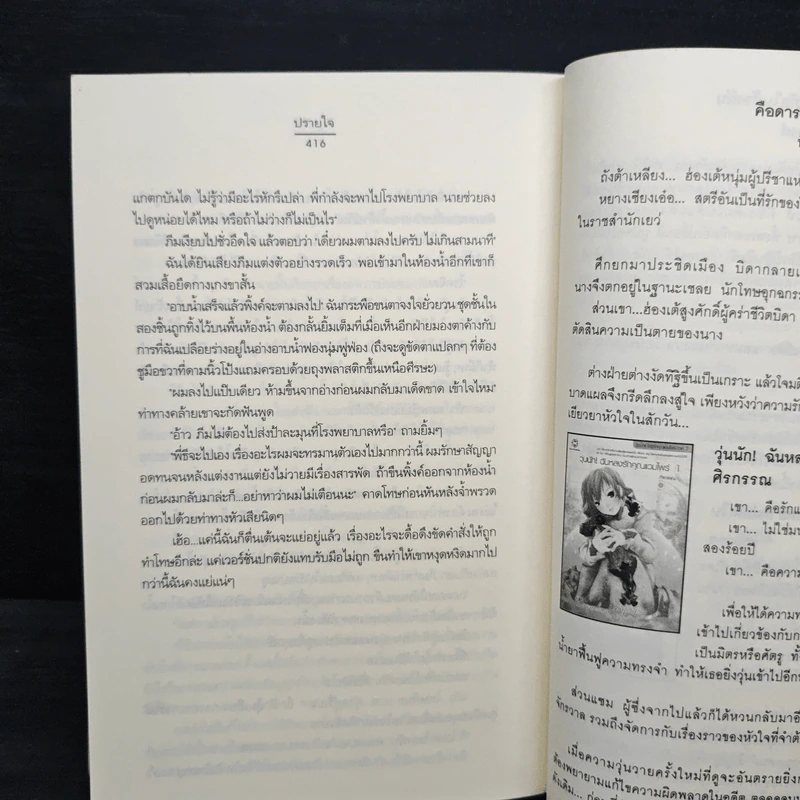 ปรายใจ
416
แกตกบันได ไม่รู้ว่ามีอะไรหักรึเปล่า พี่กำลังจะพาไปโรงพยาบาล นายช่วยลง
ไปดูหน่อยได้ไหม หรือถ้าไม่ว่างก็ไม่เป็นไร"
ภีมเงียบไปชั่วอึดใจ แล้วตอบว่า "เดี๋ยวผมตามลงไปครับ ไม่เกินสามนาที"
ฉันได้ยินเสียงภีมแต่งตัวอย่างรวดเร็ว พอเข้ามาในห้องน้ำอีกทีเขาก็
สวมเสื้อยืดกางเกงขาสั้น
"อาบน้ำเสร็จแล้วพิ้งค์จะตามลงไป" ฉันกระพือขนตาจงใจยั่วยวน ชุดชั้นใน
สองชิ้นถูกทิ้งไว้บนพื้นห้องน้ำ ต้องกลั้นยิ้มเต็มที่เมื่อเห็นอีกฝ่ายมองตาค้างกับ
การที่ฉันเปลือยร่างอยู่ในอ่างอาบน้ำฟองนุ่มฟูฟ่อง (ถึงจะดูขัดตาแปลกๆ ที่ต้อง
ชูมือขวาที่ดามนิ้วโป้งแถมครอบด้วยถุงพลาสติกขึ้นเหนือศีรษะ)
"ผมลงไปแป๊บเดียว ห้ามขึ้นจากอ่างก่อนผมกลับมาเด็ดขาด เข้าใจไหม"
ท่าทางคล้ายเขาจะกัดฟันพูด
"อ้าว ภีมไม่ต้องไปส่งป้าละมุนที่โรงพยาบาลหรือ" ถามยิ้มๆ
"พี่ธีไปเอง เรื่องอะไรผมจะทรมานตัวเองไปมากกว่านี้ ผมรักษาสัญญา
อดทนจนหลังแต่งงานแต่ยังไม่วายมีเรื่องสารพัด ถ้าขืนพิ้งค์ออกจากห้องน้ำ
ก่อนผมกลับมาล่ะก็...อย่าหาว่าผมไม่เตือนนะ" คาดโทษก่อนหันหลังจ้ำพรวด
ออกไปด้วยท่าทางหัวเสียนิดๆ
เฮ้อ...แค่นี้ฉันก็ตื่นเต้นจะแย่อยู่แล้ว เรื่องอะไรจะดื้อดึงขัดคำสั่งให้ถูก
ทำโทษอีกล่ะ แค่เวอร์ชั่นปกติยังแทบรับมือไม่ถูก ขืนทำให้เขาหงุดหงิดมากไป
กว่านี้ฉันคงแย่แน่ๆ
คือดาร
ถังต้าเหลียง... ฮ่องเต้หนุ่มผู้ปรีชาแห่
หยางเซียงเอ๋อ... สตรีอันเป็นที่รักของ
ในราชสำนักเยว่
ศึกยกมาประชิดเมือง บิดากลายเ
นางจึงตกอยู่ในฐานะเชลย นักโทษอุกฉกรร
ส่วนเขา...ฮ่องเต้สูงศักดิ์ผู้คร่าชีวิตบิดา
ตัดสินความเป็นตายของนาง
ต่างฝ่ายต่างงัดทิฐิขึ้นเป็นเกราะ แล้วโจมตี
บาดแผลจึงกรีดลึกลงสู่ใจ เพียงหวังว่าความรัก
เยียวยาหัวใจในสักวัน...
วุ่นนัก! ฉันหลงรักคุณแวมไพร์ 1
วุ่นนัก! ฉันหล
ศิรกรรณ
เขา... คือรักแ
เขา... ไม่ใช่มน
สองร้อยปี
เขา... คือความ
เพื่อให้ได้ความท
เข้าไปเกี่ยวข้องกับก
เป็นมิตรหรือศัตรู ทั้
น้ำยาฟื้นฟูความทรงจำ ทำให้เธอยิ่งวุ่นเข้าไปอีก
ส่วนแซม ผู้ซึ่งจากไปแล้วก็ได้หวนกลับมาอี
จักรวาล รวมถึงจัดการกับเรื่องราวของหัวใจที่จำต้
เมื่อความวุ่นวายครั้งใหม่ที่ดูจะอันตรายยิ่งก
ต้องพยายามแก้ไขความผิดพลาดในอดีต
ดังเดิม...